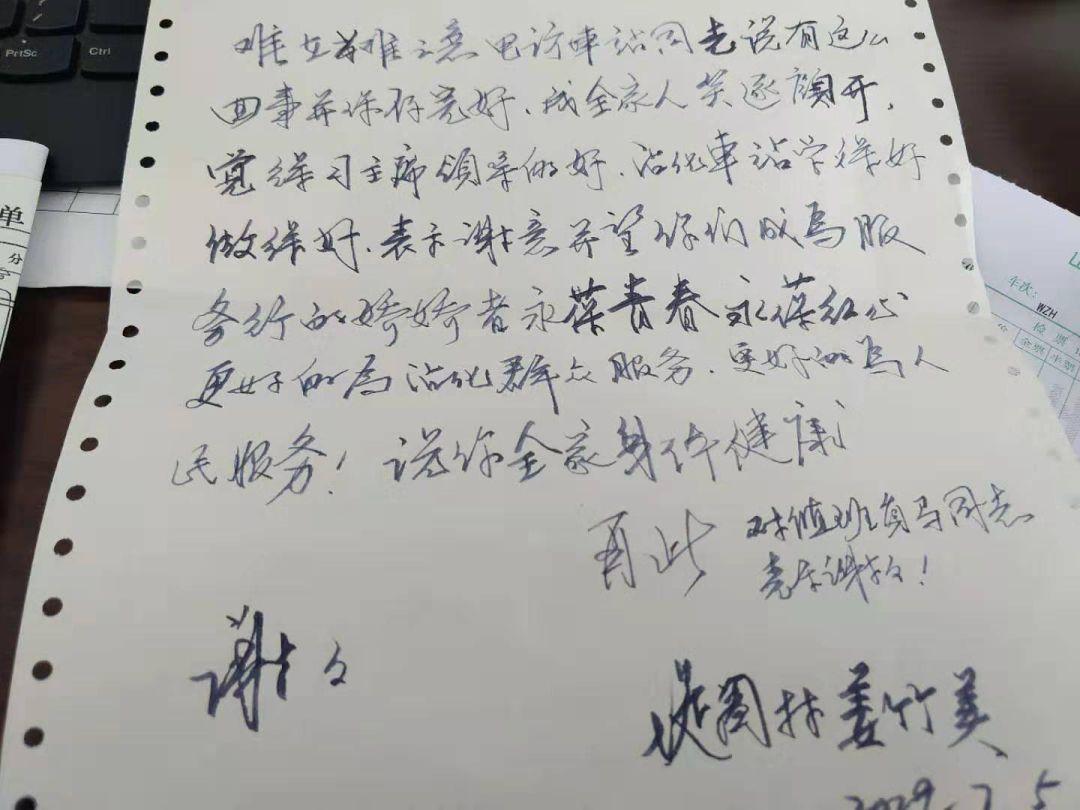 PrtSc
Ctrl
单
分
车次:
WZH
检票
全票 半票
难之意电话车站同志说有这么
回事并保存完好、成全家人笑逐颜开,
觉得习主席领导的好、沾化车站学得好
做得好、表示谢意并望你们成为服
务行的娇娇者永葆青春永葆红心
更好的为沾化群众服务、更好的为人
民服务!祝你全家身体健康
再此 对值班员马同志
表示谢谢!
谢谢
姜竹美
7.5